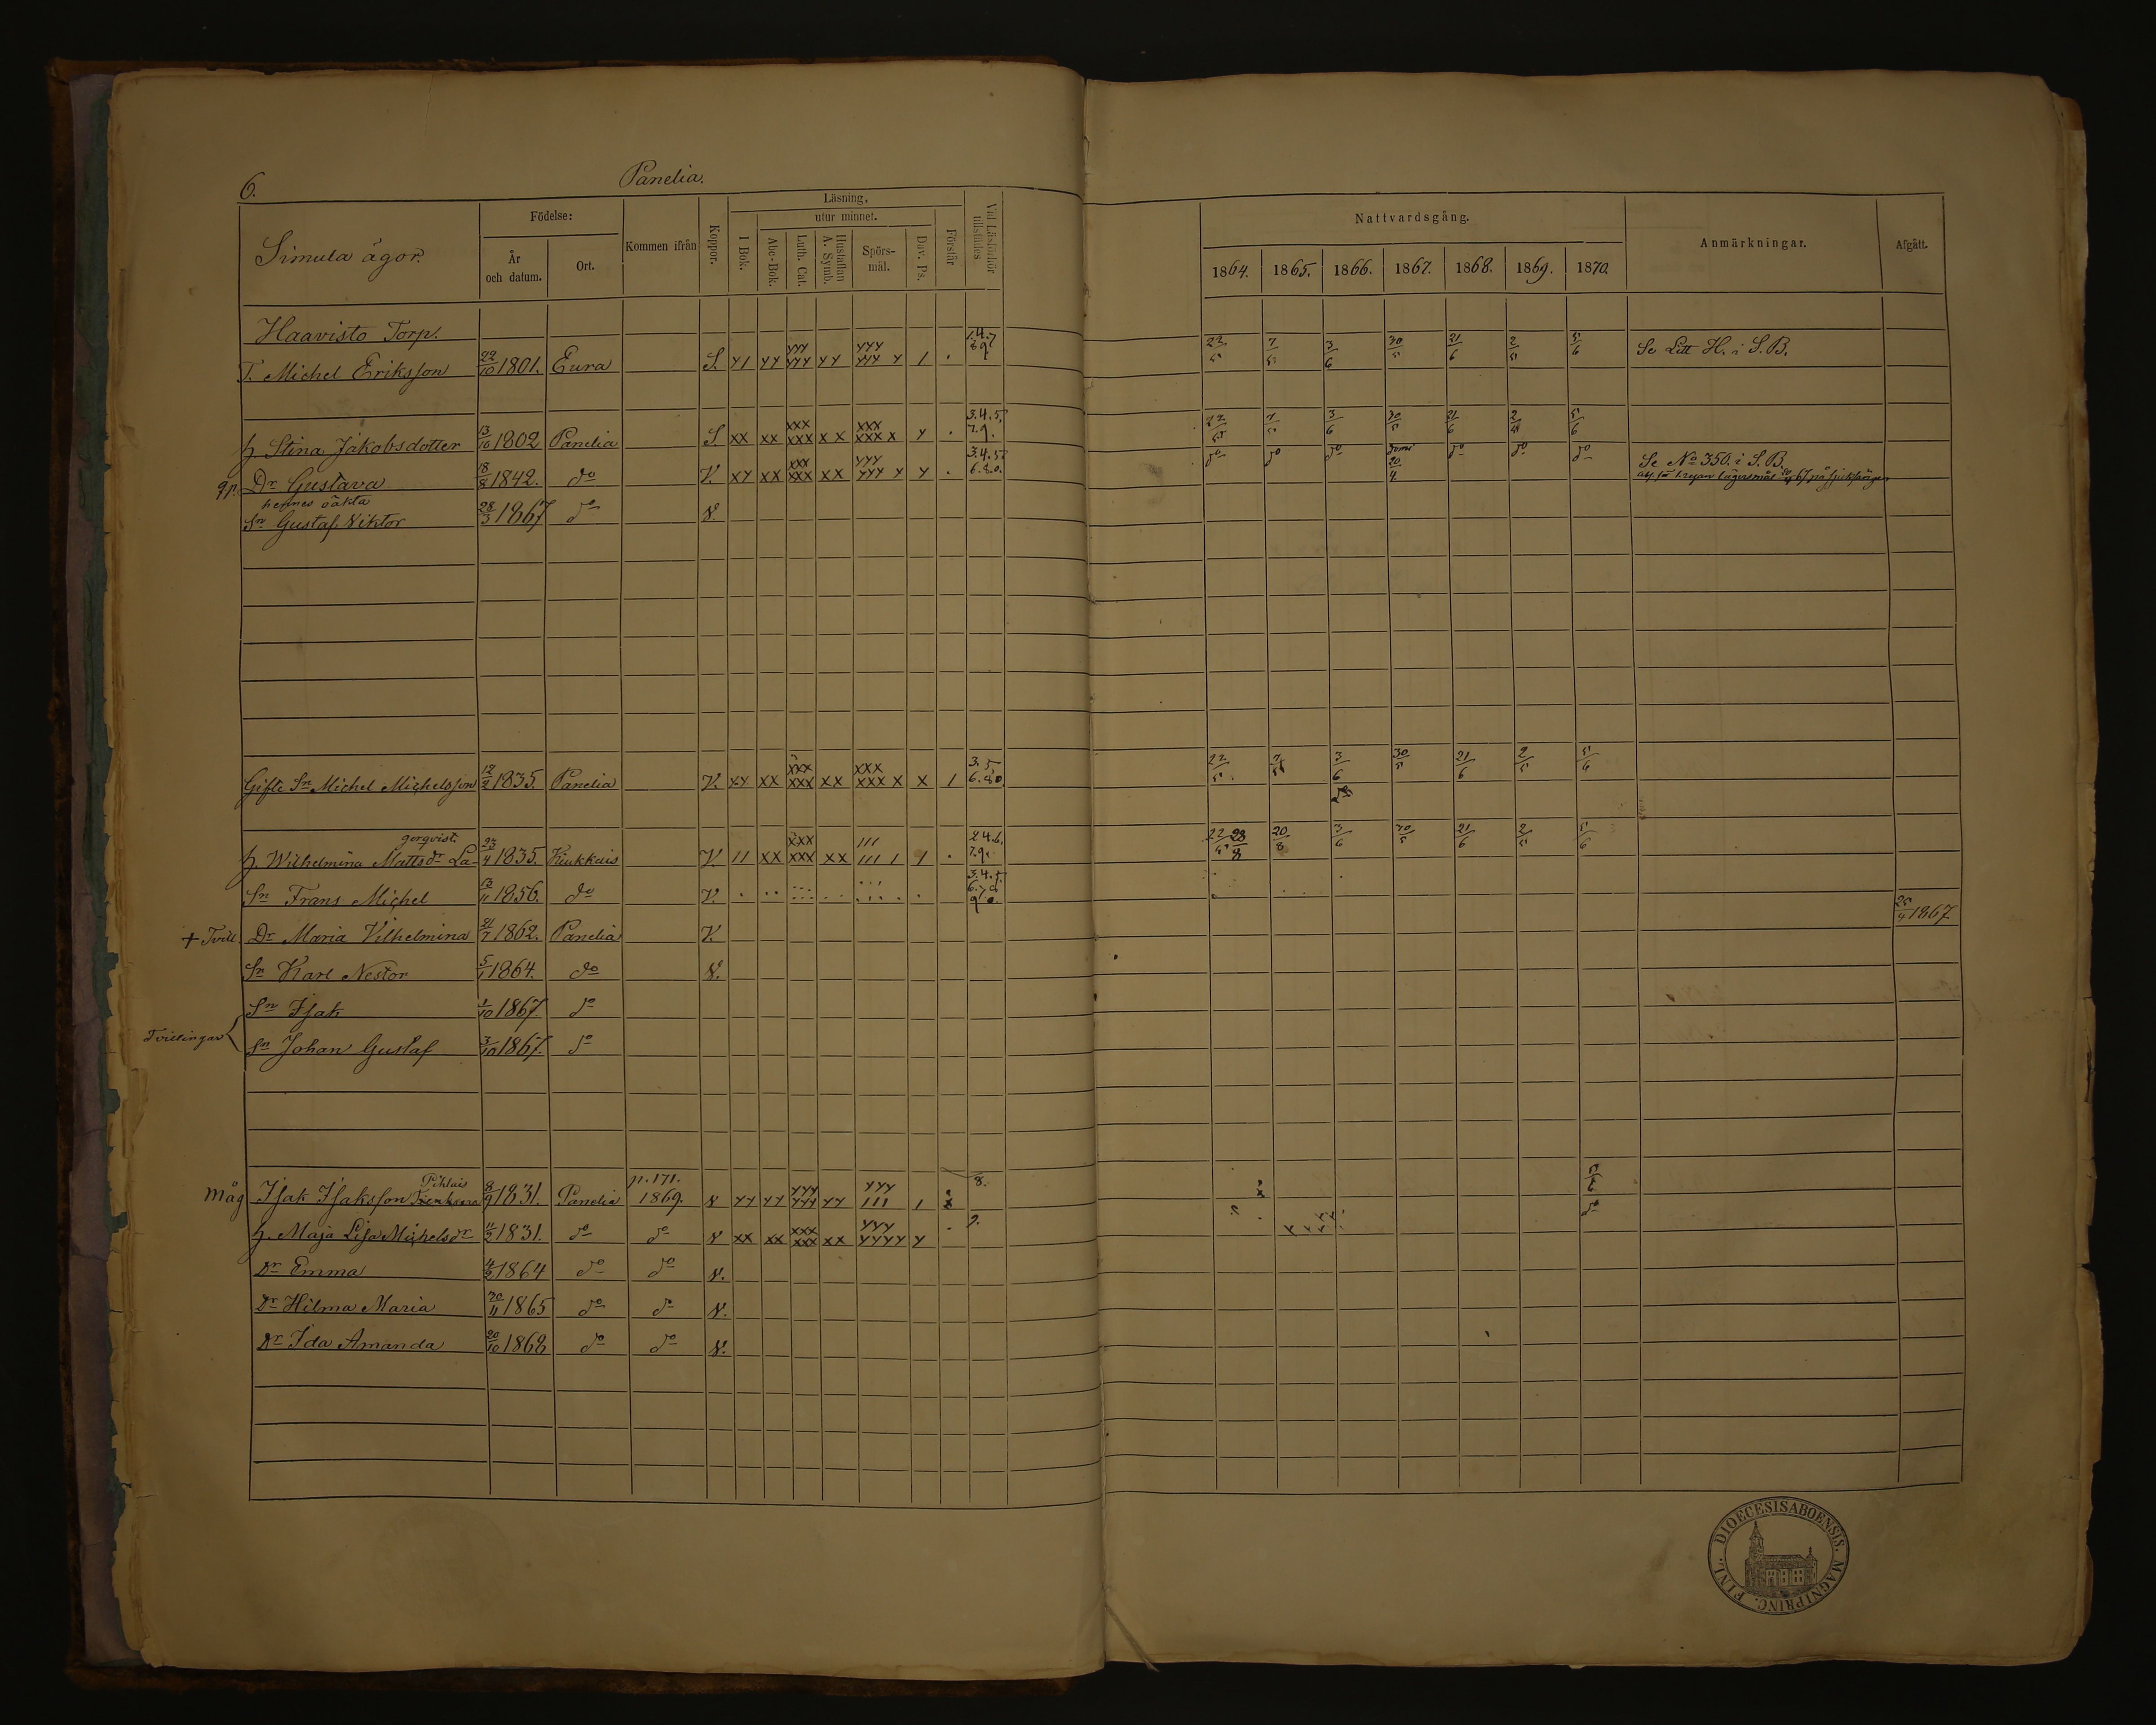 6.
Panelia.
Simula ägor.
Födelse:
År och datum.
Ort.
Kommen ifrån
Koppor.
Läsning,
utur minnet.
I Bok.
Abc-Bok.
Luth. Cat.
Hustaflan A. Symb.
Spörs-mål.
Dav. Ps.
Förstår
Vid Läsförhör tillstädes
Nattvardsgång.
1864. 1865. 1866. 1867. 1868. 1869. 1870.
Anmärkningar.
Afgått.
Haavisto Torp.
T. Michel Eriksson 22/10 1801. Eura S. 1.4.7 8 9 22/5 7/5 3/6 30/5 21/6 2/5 5/6 Se Litt H. i S.B.
h Stina Jakobsdotter 13/10 1802 Panelia S xx xx xxx xxx x x xxx xxx x y . 3.4.5. 7.9. 22/5 7/5 3/6 30/5 21/6 2/5 5/6
Dr Gustava 18/8 1842. do V. 3.4.5. 6.8.0. do do do 20/4 do do do Se No 350. i S.B.
hennes oäkta
Sn Gustaf Viktor 28/3 1867 do V.
Gifte Sn Michel Michelsson 12/2 1835. Panelia V. xx xx xxx xxx xx xxx xxx x x 1 3.5. 6.8.0. 22/5 7/5 3/6 30/5 21/6 2/5 5/6
gerqvist.
h. Wilhelmina Mattsdr La- 23/4 1835. Kiukkais V. 11 xx xxx xxx xx 111 111 1 2 4.6. 7.9. 22/5 28/8 20/8 3/6 30/5 21/6 2/5 5/6
Sn Frans Michel 13/11 1856. do V.
+ Tvill. Dr Maria Vilhelmina 21/7 1862. Panelia V. 25/4 1867.
Sn Karl Nestor 5/1 1864. do V.
Tvillingar
Sn Isak 1/10 1867 do
Sn Johan Gustaf 3/10 1867. do
Måg Isak Isaksson 8/9 1831. Panelia p. 171. 1869. V yy yy yyy yyy yy yyy 111 1 8. 5/6
h. Maja Lisa Michelsdr 11/2 1831. do do V xx xx xxx xxx xx yyy yyyy y 9. do
Dr Emma 1864 do do V.
Dr Hilma Maria 20/11 1865 do do V.
Dr Ida Amanda 20/10 1868 do do V.
FINL. DIOECESISABOENSIS. MAGNIPRINC.